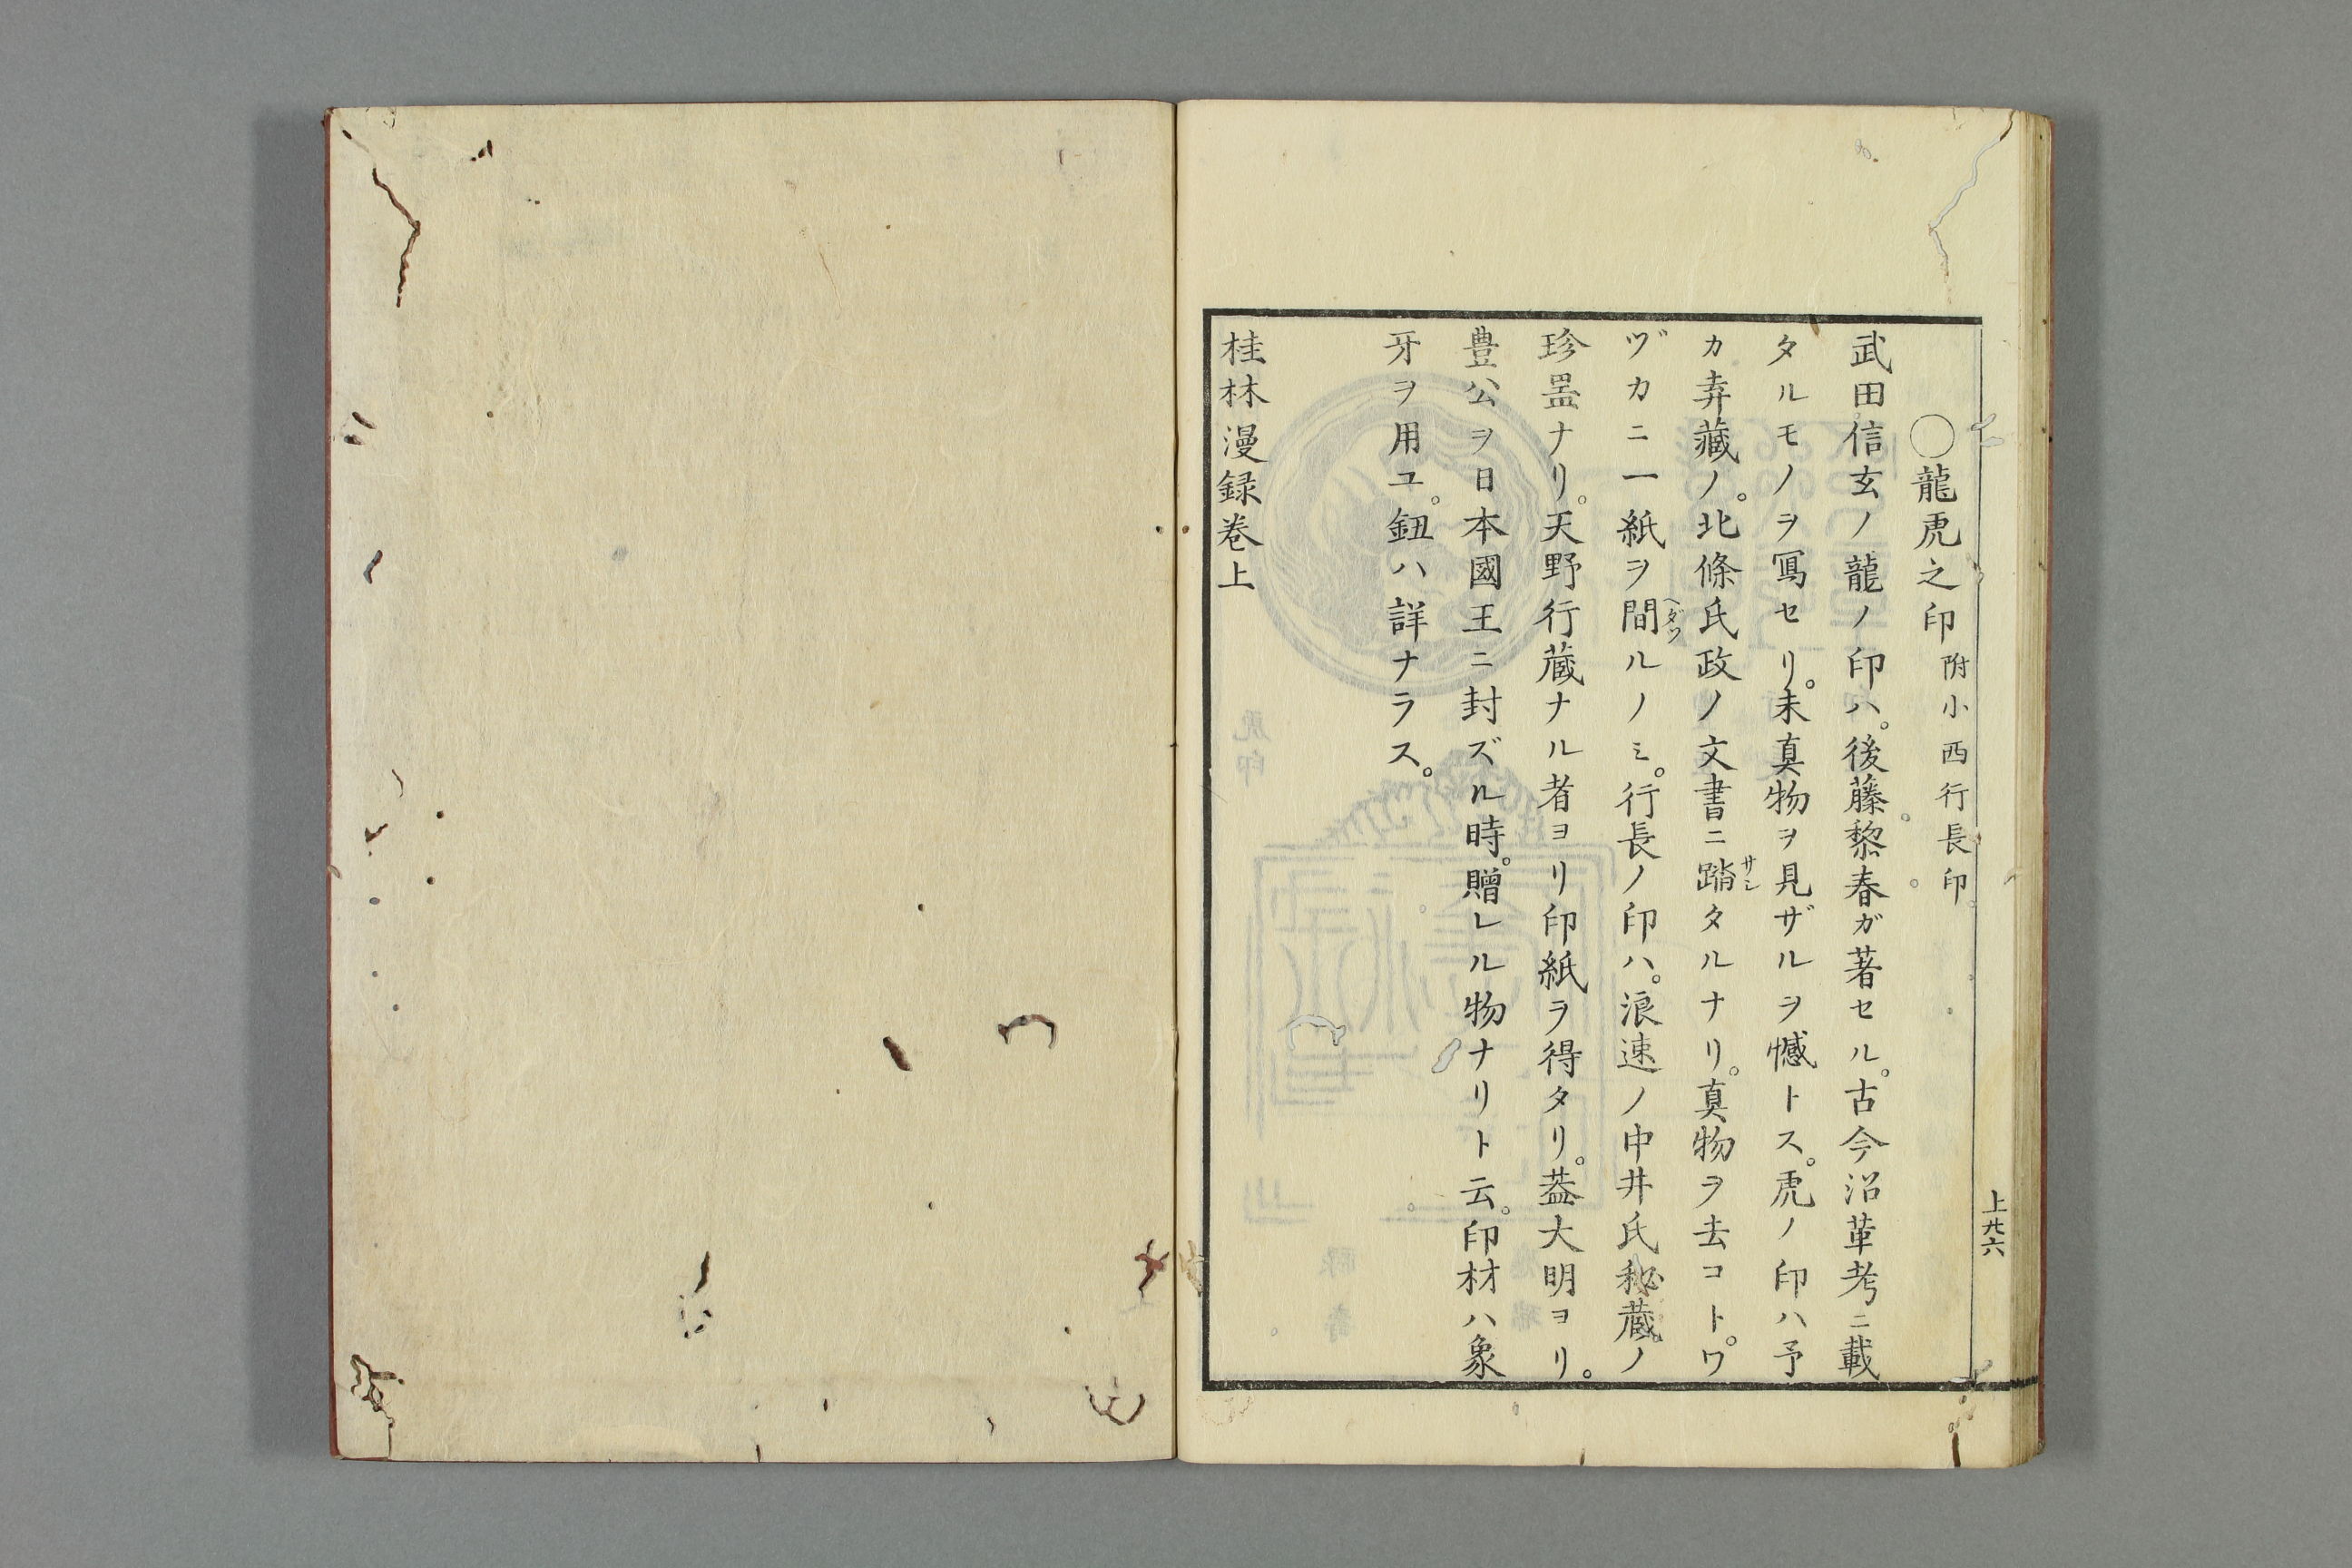 〇龍虎之印 附小西行長印
武田信玄ノ龍ノ印ハ。後藤黎春ガ著セル。古今沿革考ニ載
タルモノヲ冩セリ。未真物ヲ見ザルヲ憾トス。虎ノ印ハ予
カ弆藏ノ。北條氏政ノ文書ニ踏サシタルナリ。真物ヲ去コト。ワ
ヅカニ一紙ヲ間ヘダツルノミ。行長ノ印ハ。浪速ノ中井氏秘蔵ノ
珍噐ナリ。天野行蔵ナル者ヨリ印紙ヲ得タリ。葢大明ヨリ。
豊公ヲ日本國王ニ封ズル時。贈レル物ナリト云。印材ハ象
牙ヲ用ユ。鈕ハ詳ナラス。
桂林漫録巻上
上廿六